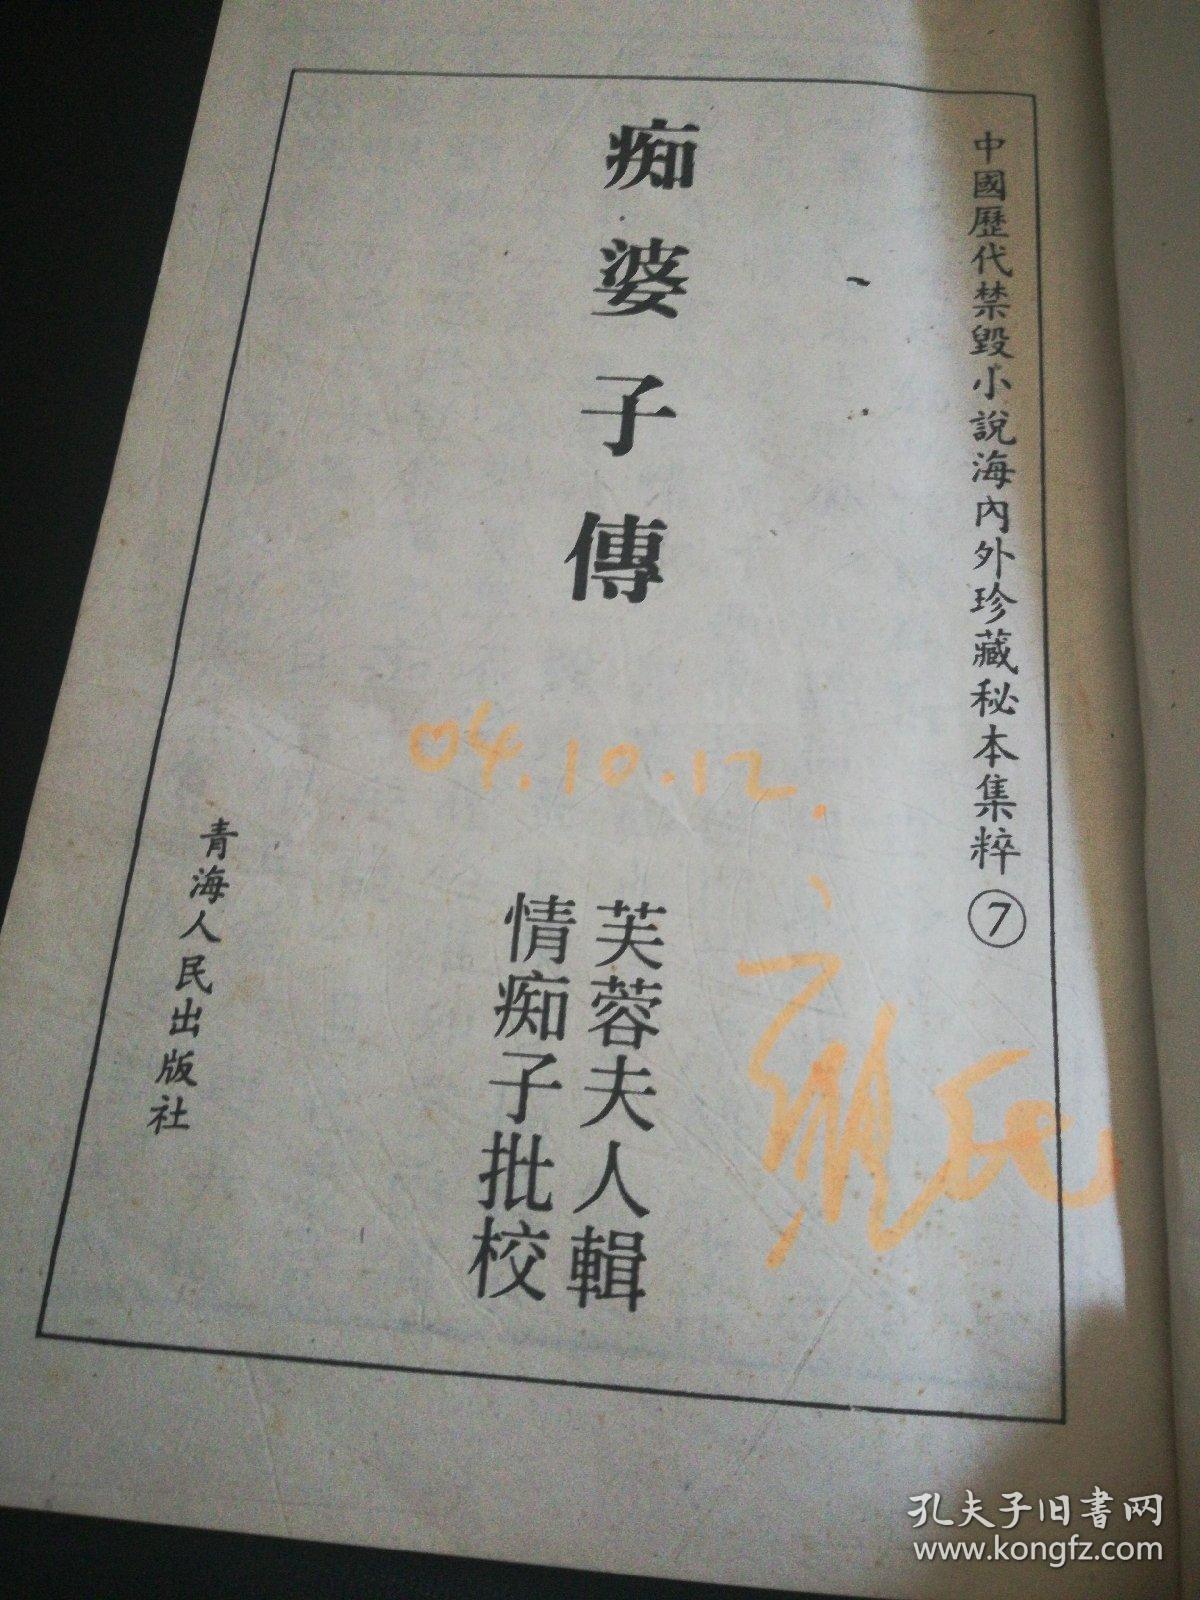 中國歷代禁毀小說海內外珍藏秘本集粹⑦
痴婆子傳
04.10.12.
芙蓉夫人輯
情痴子批校
青海人民出版社
孔夫子旧書网
www.kongfz.com